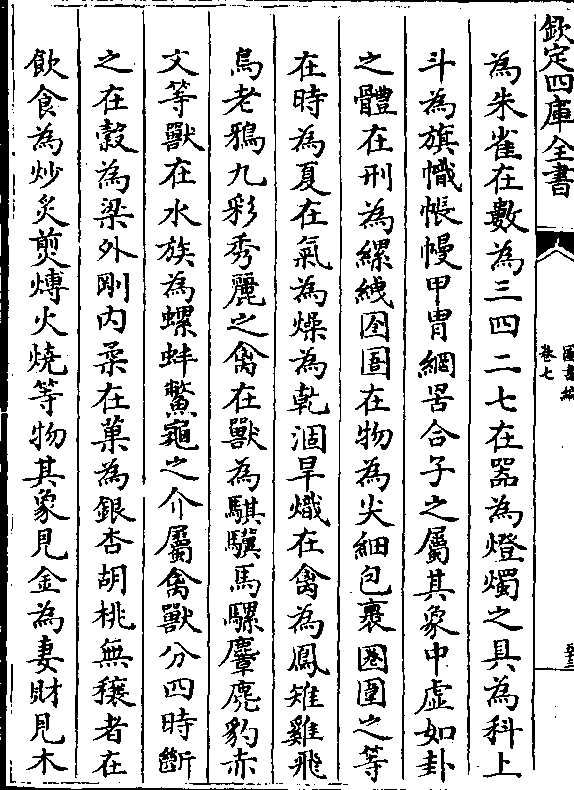 欽定四庫全書
圖書編
卷七
為朱雀在數為三四二七在器為燈燭之具為科上
斗為旗幟帳幔甲胄網罟合子之屬其象中虛如卦
之體在刑為縲絏囹圄在物為尖細包裹圈圍之等
在時為夏在氣為燥為乾涸旱熾在禽為鳳雉雞飛
鳥老鴉九彩秀麗之禽在獸為騏驥馬騾麞麃豹赤
文等獸在水族為螺蚌鱉龜之介屬禽獸分四時斷
之在穀為梁外剛內柔在菓為銀杏胡桃無穰者在
飲食為炒炙煎煿火燒等物其象見金為妻財見木